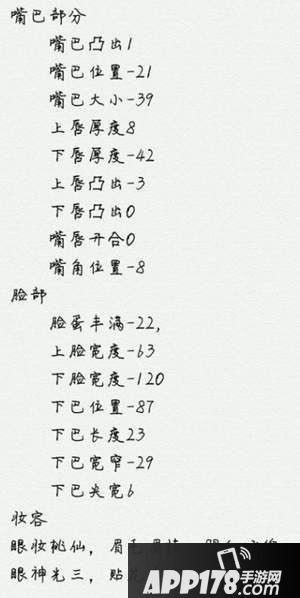 嘴巴部分
嘴巴凸出1
嘴巴位置-21
嘴巴大小-39
上唇厚度8
下唇厚度-42
上唇凸出-3
下唇凸出0
嘴唇开合0
嘴角位置-8
脸部
脸蛋丰满-22,
上脸宽度-63
下脸宽度-120
下巴位置-87
下巴长度23
下巴宽窄-29
下巴尖宽6
妆容
眼妆桃仙, 眉毛
眼神光三, 贴
APP178手游网